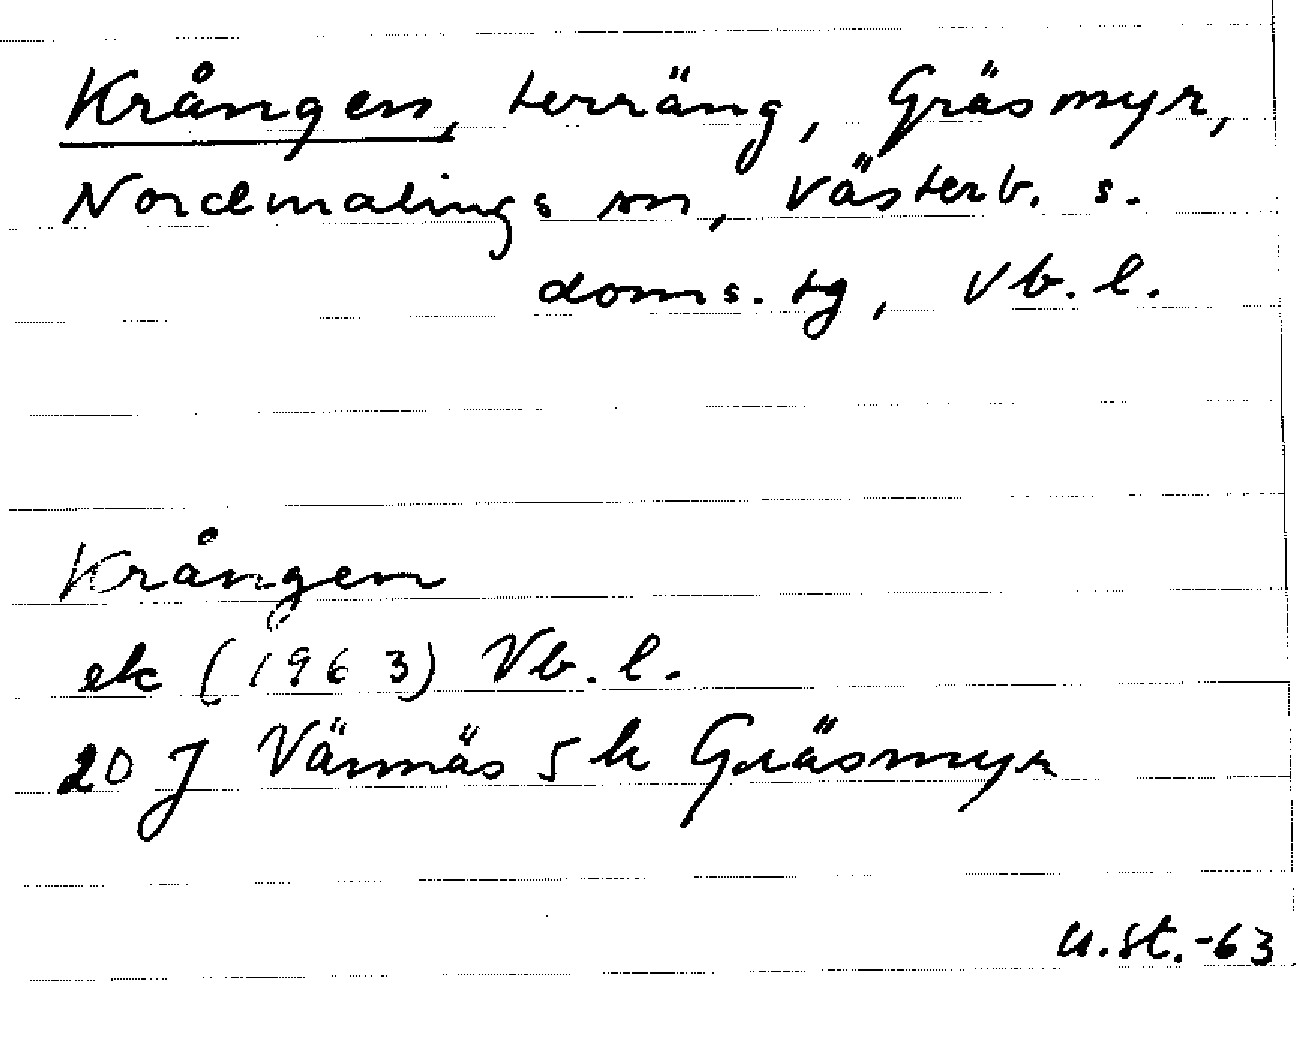 Krången, terräng, Gräsmyr,
Nordmalings sn, Västerb. s.
doms. tg, Vb. l.
Krången
ek (1963) Vb. l.
20 J Värnäs 5 h Gräsmyr
U.St.-63